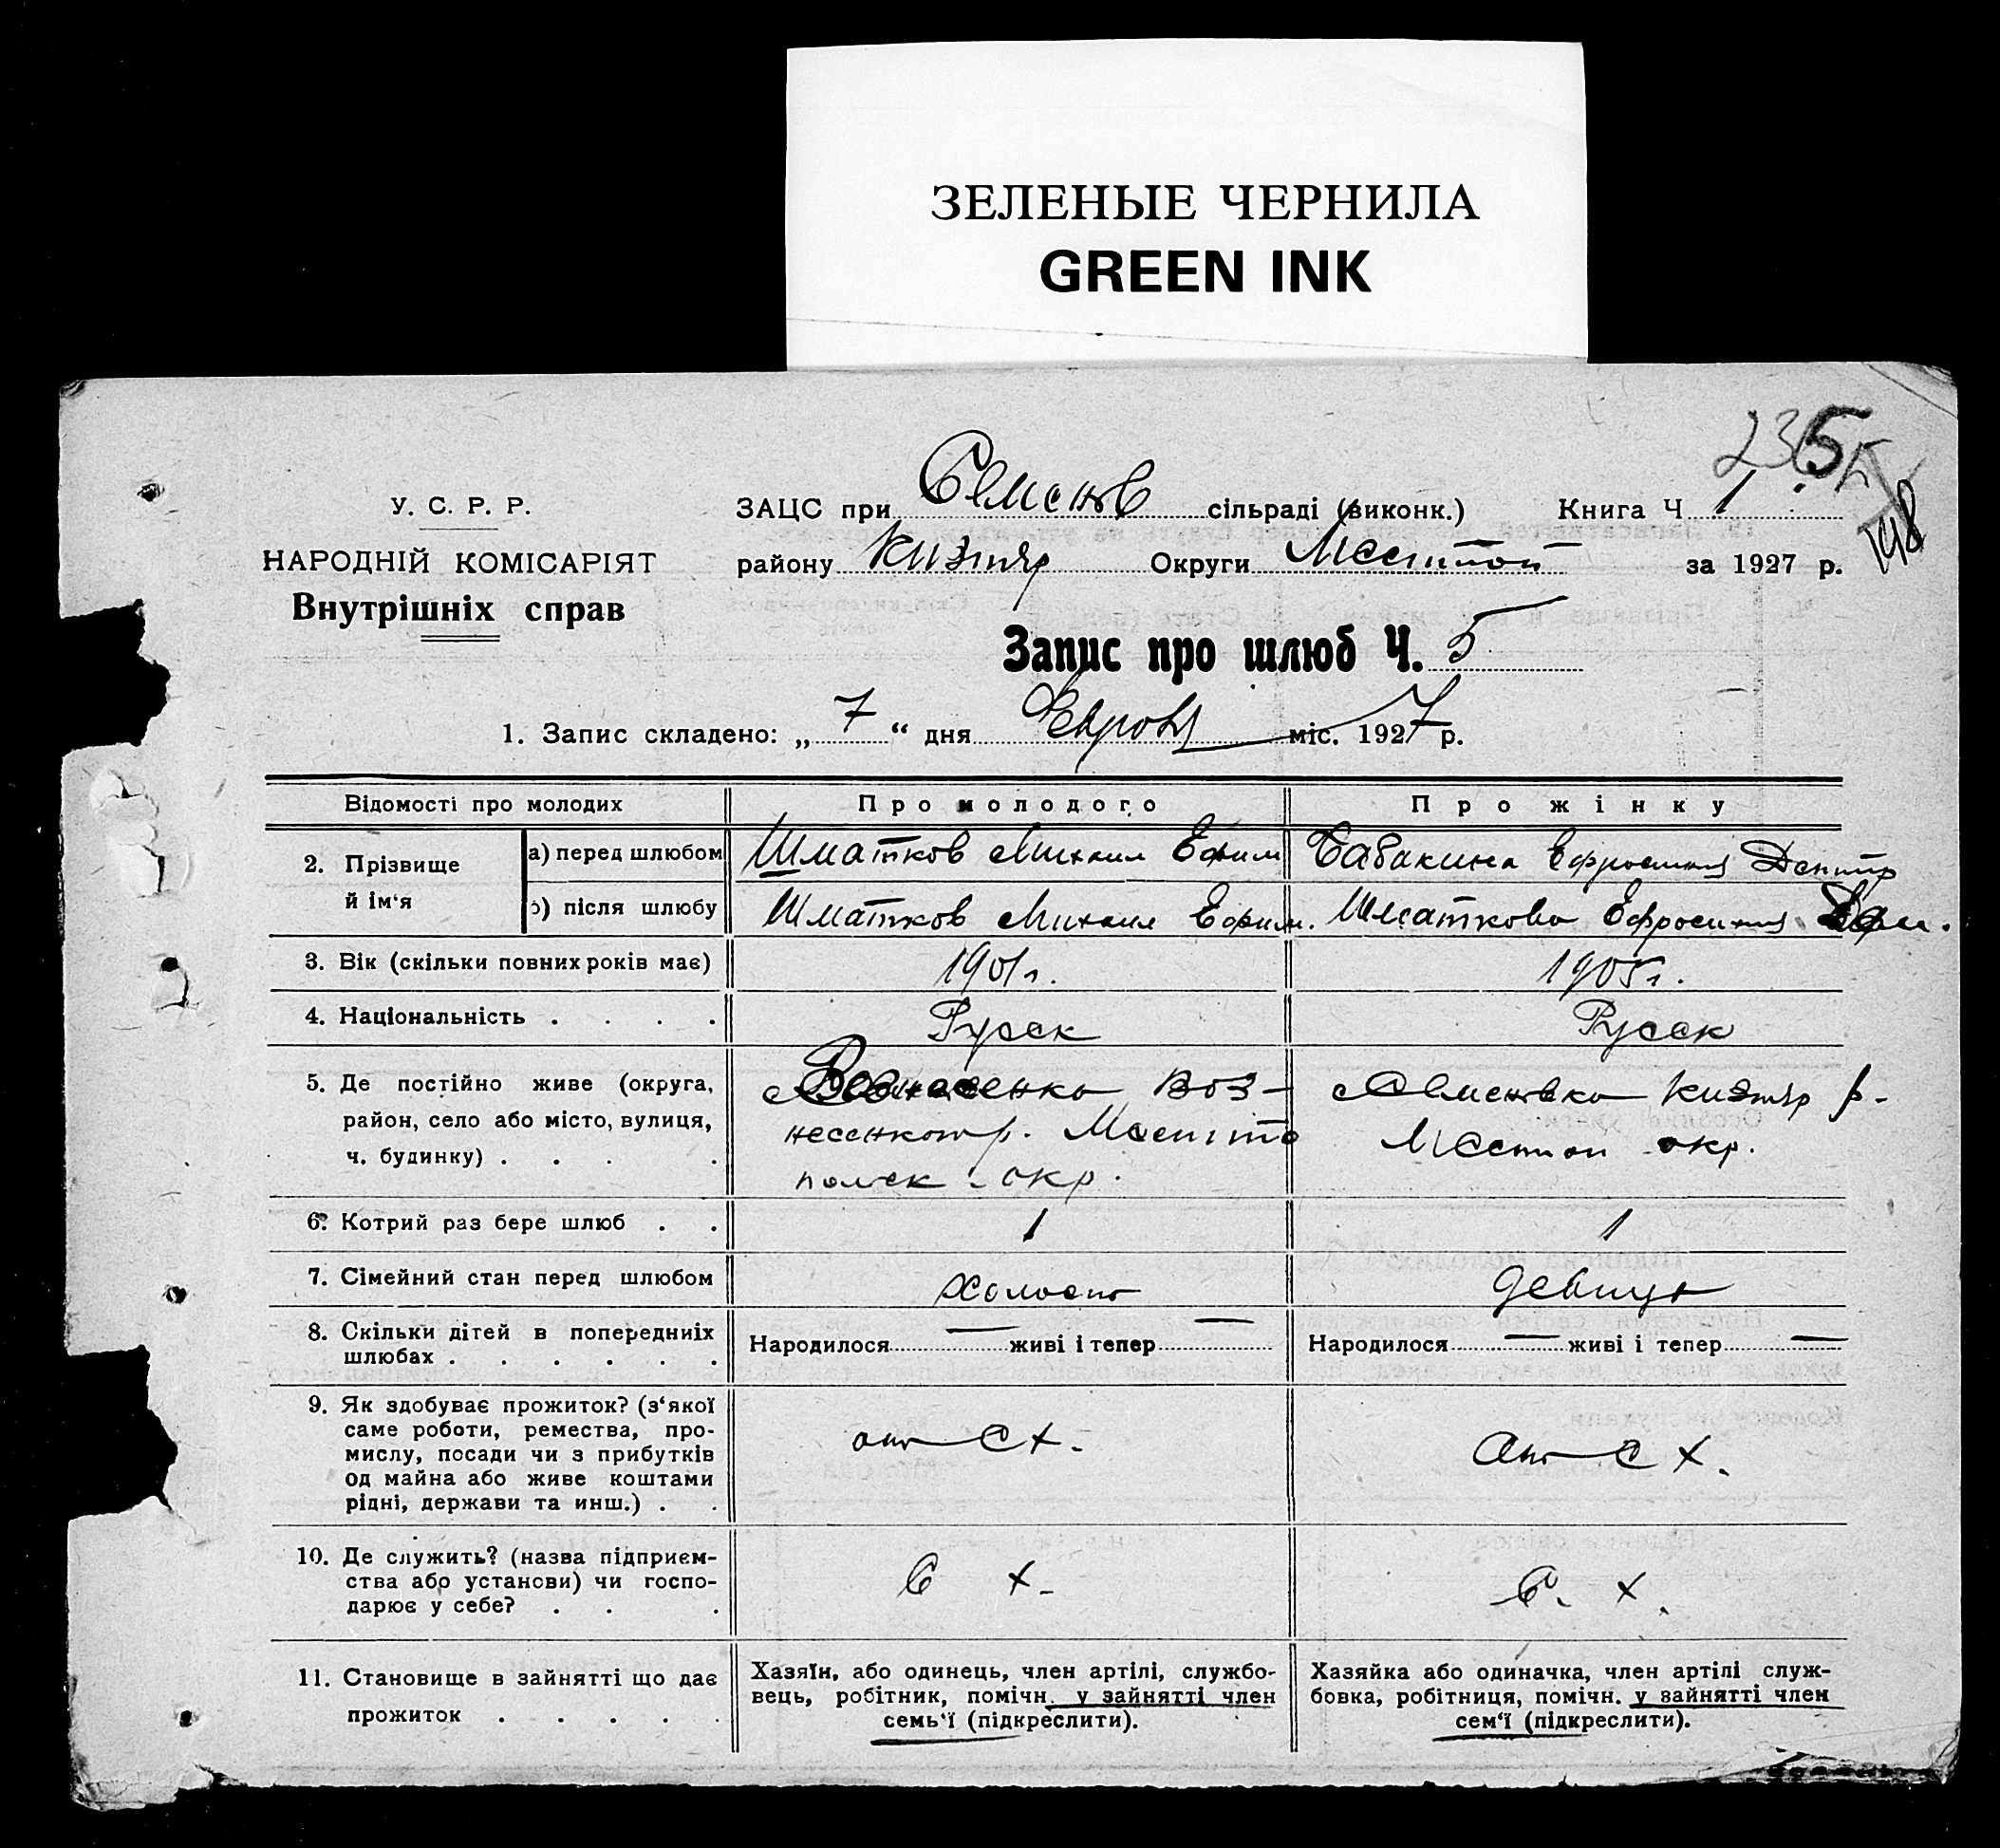 ЗЕЛЕНЫЕ ЧЕРНИЛА
GREEN INK
У. С. Р. Р.
НАРОДНІЙ КОМІСАРІЯТ
Внутрішніх справ
ЗАЦС при Семенов сільраді (виконк.) Книга Ч 1
району Кизияр Округи Мелитоп за 1927 р.
148
Запис про шлюб Ч. 5
1. Запис складено: „ 7 “ дня міс. 1927 р.
Відомості про молодих Про молодого Про жінку
2. Прізвище й ім‘я
а) перед шлюбом Шматков Михаил Ефим Бабакина Ефросиния
б) після шлюбу Шматков Михаил Ефим. Шматкова Ефросиния
3. Вік (скільки повних років має) 1901г. 1905г.
4. Національність . . . . Русск Русск
5. Де постійно живе (округа,
район, село або місто, вулиця,
ч. будинку) . . . .
Вознесенка Воз-
несенког р. Мелито
польск. окр.
с Семеновка Кизияр р-
Мелитоп окр.
6. Котрий раз бере шлюб . . 1 1
7. Сімейний стан перед шлюбом Холост девица
8. Скільки дітей в попередніх
шлюбах . . . . . .
Народилося — живі і тепер — Народилося — живі і тепер —
9. Як здобуває прожиток? (з‘якої
саме роботи, ремества, про-
мислу, посади чи з прибутків
од майна або живе коштами
рідні, держави та инш.) . .
от С Х. От С Х.
10. Де служить? (назва підприєм-
ства або установи) чи госпо-
дарює у себе? . . .
С Х. С. Х.
11. Становище в зайнятті що дає
прожиток . . . . .
Хазяїн, або одинець, член артілі, службо-
вець, робітник, помічн. у зайнятті член
семь‘ї (підкреслити).
Хазяйка або одиначка, член артілі служ-
бовка, робітниця, помічн. у зайнятті член
сем‘ї (підкреслити).